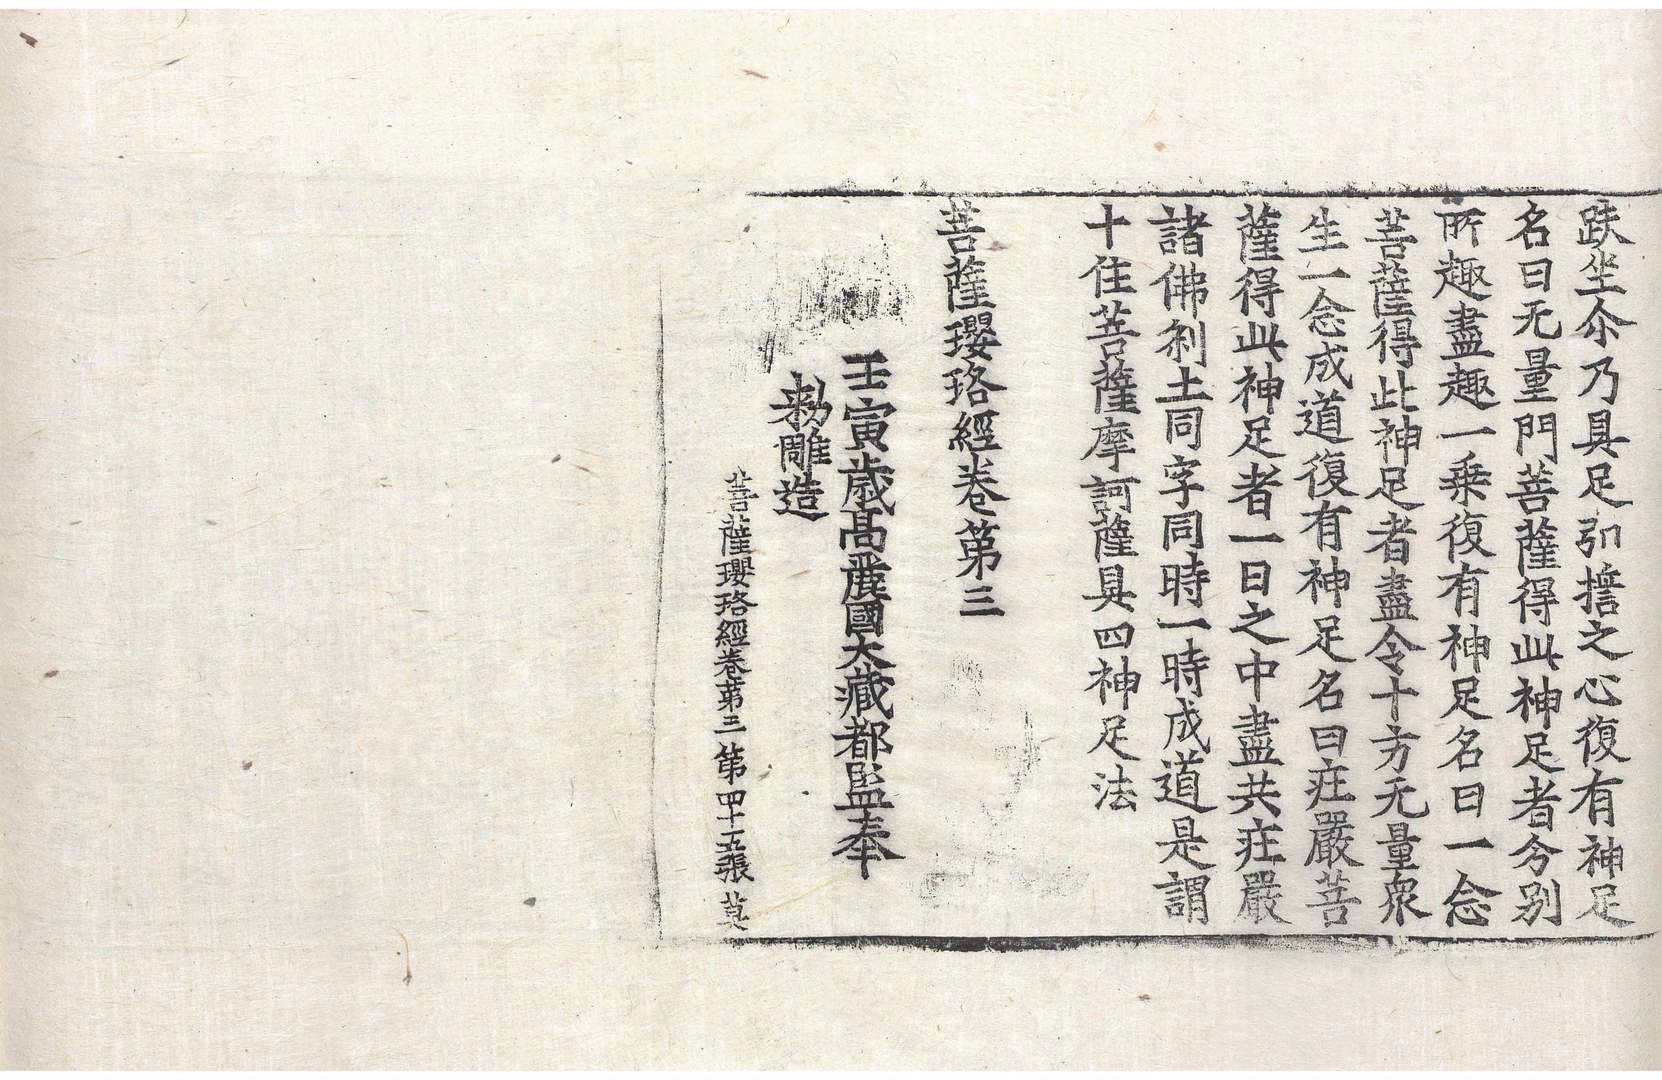 趺坐尒乃具足弘誓之心復有神足
名曰无量門菩薩得此神足者分别
所趣盡趣一乗復有神足名曰一念
菩薩得此神足者盡令十方无量衆
生一念成道復有神足名曰庄嚴菩
薩得此神足者一日之中盡共庄嚴
諸佛刹土同字同時一時成道是謂
十住菩薩摩訶薩具四神足法
菩薩瓔珞經卷第三
壬寅歳高麗國大藏都監奉
勑雕造
菩薩瓔珞經卷第三 第四十五張 莫